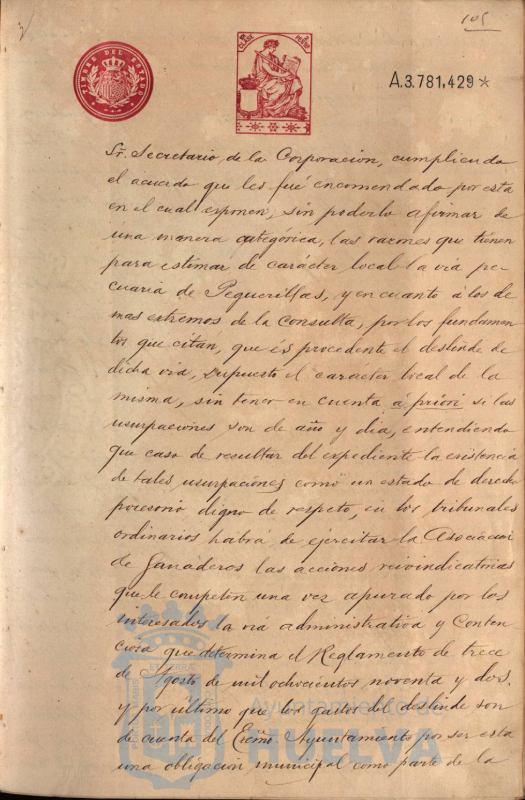 105
TIMBRE DEL ESTADO
A.3.781,429*
Sr. Secretario, de la Corporacion, cumpliendo
el acuerdo que les fué encomendado por esta
en el cual exponen, sin poderlo afirmar de
una manera categórica, las razones que tienen
para estimar de carácter local la via pe
cuaria de Pequerillas, y en cuanto á los de
mas extremos de la Consulta, por los fundamen
tos que citan, que es procedente el deslinde de
dicha via, supuesto el caracter local de la
misma, sin tener en cuenta á priori si las
usurpaciones son de año y dia, entendiendo
que caso de resultar del expediente la existencia
de tales usurpaciones como un estado de derecho
posesorio digno de respeto, en los tribunales
ordinarios habrá de ejercitar la Asociacion
de Ganaderos las acciones reivindicatorias
que le competen una vez apurado por los
interesados la via administrativa y Conten
ciosa que determina el Reglamento de trece
de Agosto de mil ochocientos noventa y dos.
y por último que los gastos del deslinde son
de cuenta del Excmo. Ayuntamiento por ser esta
una obligacion municipal como parte de la
Ayuntamiento de
HUELVA